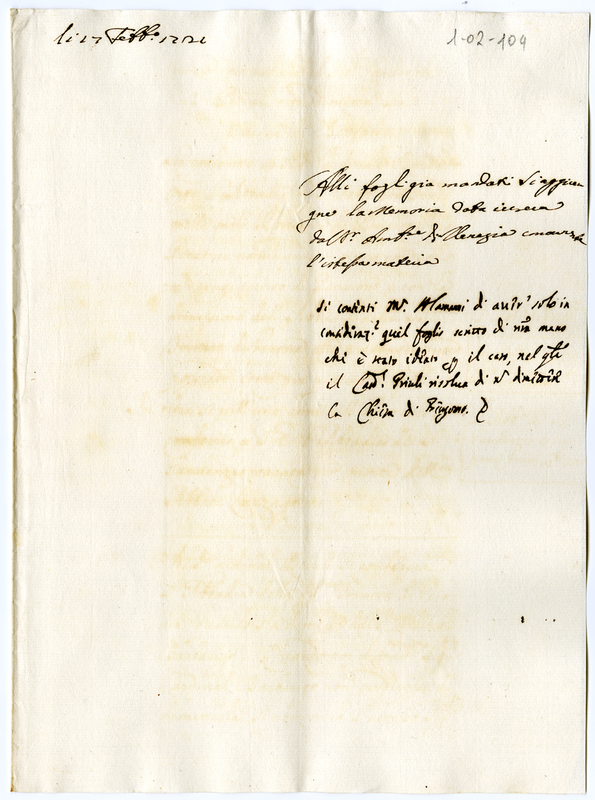 li 27 Febb.º 1721
1-02-104
Alli fogli gia mandati si aggiun
gne la Memoria data iersera
dal Sr. Amb.re di Venezia
l'istessa materia
Si contenti Mr. Alamanni di aver solo in
quel foglio scritto di mano
chi è stato ideato il caso, nel
il Card. Priuli risolva di dimettere
la Chiesa di